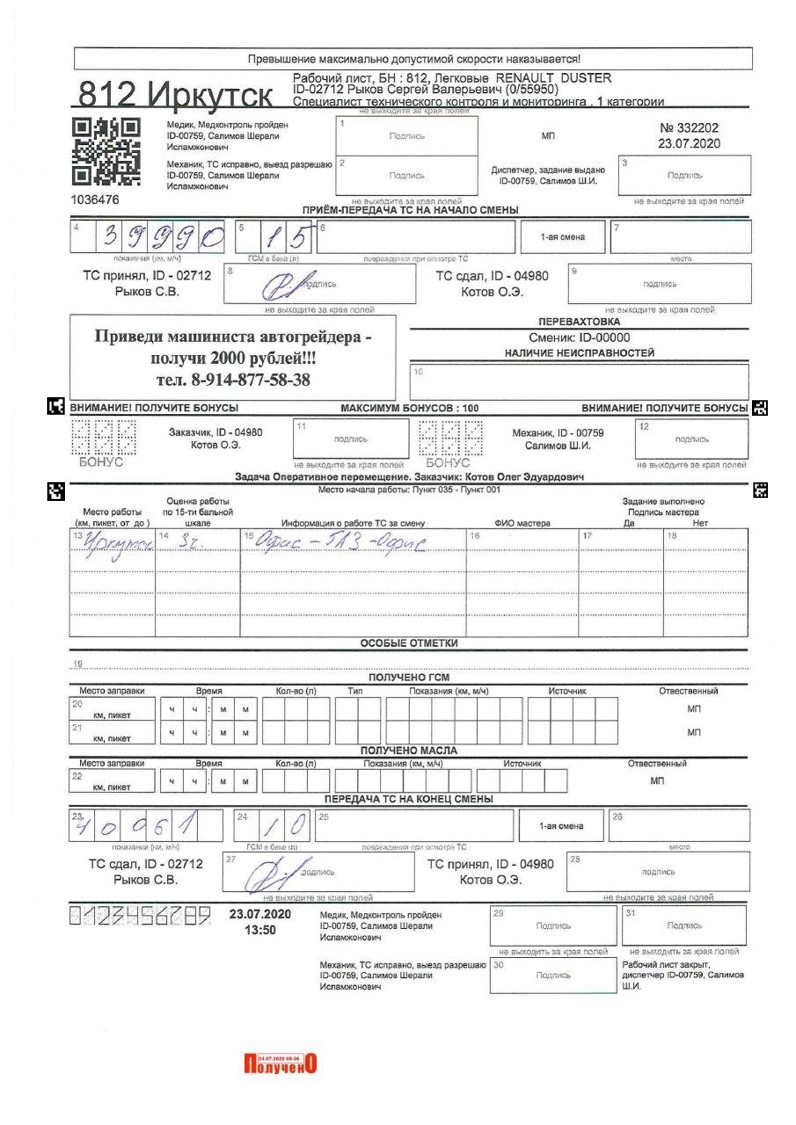 Превышение максимально допустимой скорости наказывается!
812 Иркутск
Рабочий лист, БН : 812, Легковые RENAULT DUSTER
ID-02712 Рыков Сергей Валерьевич (0/55950)
Специалист технического контроля и мониторинга , 1 категории
не выходите за края полей
1036476
Медик, Медконтроль пройден
ID-00759, Салимов Шерали
Исламжонович
1 Подпись
МП
№ 332202
23.07.2020
Механик, ТС исправно, выезд разрешаю
ID-00759, Салимов Шерали
Исламжонович
2 Подпись
Диспетчер, задание выдано
ID-00759, Салимов Ш.И.
3 Подпись
не выходите за края полей не выходите за края полей
ПРИЁМ-ПЕРЕДАЧА ТС НА НАЧАЛО СМЕНЫ
4 39990 5 15 6 1-ая смена 7
показания (км, м/ч) ГСМ в баке (л) повреждения при осмотре ТС место
ТС принял, ID - 02712
Рыков С.В.
8 подпись
ТС сдал, ID - 04980
Котов О.Э.
9 подпись
не выходите за края полей не выходите за края полей
Приведи машиниста автогрейдера -
получи 2000 рублей!!!
тел. 8-914-877-58-38
ПЕРЕВАХТОВКА
Сменик: ID-00000
НАЛИЧИЕ НЕИСПРАВНОСТЕЙ
10
ВНИМАНИЕ! ПОЛУЧИТЕ БОНУСЫ МАКСИМУМ БОНУСОВ : 100 ВНИМАНИЕ! ПОЛУЧИТЕ БОНУСЫ
БОНУС
Заказчик, ID - 04980
Котов О.Э.
11 подпись
БОНУС
Механик, ID - 00759
Салимов Ш.И.
12 подпись
не выходите за края полей не выходите за края полей
Задача Оперативное перемещение. Заказчик: Котов Олег Эдуардович
Место начала работы: Пункт 035 - Пункт 001
Место работы
(км, пикет, от до )
Оценка работы
по 15-ти бальной
шкале
Информация о работе ТС за смену
ФИО мастера
Задание выполнено
Подпись мастера
Да Нет
13 Иркутск 14 3ч. 15 Офис - ГАЗ - Офис 16 17 18
ОСОБЫЕ ОТМЕТКИ
19
ПОЛУЧЕНО ГСМ
Место заправки Время Кол-во (л) Тип Показания (км, м/ч) Источник Отвественный
20 км, пикет ч ч : м м МП
21 км, пикет ч ч : м м МП
ПОЛУЧЕНО МАСЛА
Место заправки Время Кол-во (л) Показания (км, м/ч) Источник Отвественный
22 км, пикет ч ч : м м МП
ПЕРЕДАЧА ТС НА КОНЕЦ СМЕНЫ
23 40061 24 10 25 1-ая смена 26
показания (км, м/ч) ГСМ в баке (л) повреждения при осмотре ТС место
ТС сдал, ID - 02712
Рыков С.В.
27 подпись
ТС принял, ID - 04980
Котов О.Э.
28 подпись
не выходите за края полей не выходите за края полей
0123456789
23.07.2020
13:50
Медик, Медконтроль пройден
ID-00759, Салимов Шерали
Исламжонович
29 Подпись
31 Подпись
не выходите за края полей не выходите за края полей
Механик, ТС исправно, выезд разрешаю
ID-00759, Салимов Шерали
Исламжонович
30 Подпись
Рабочий лист закрыт,
диспетчер ID-00759, Салимов
Ш.И.
ПолученО